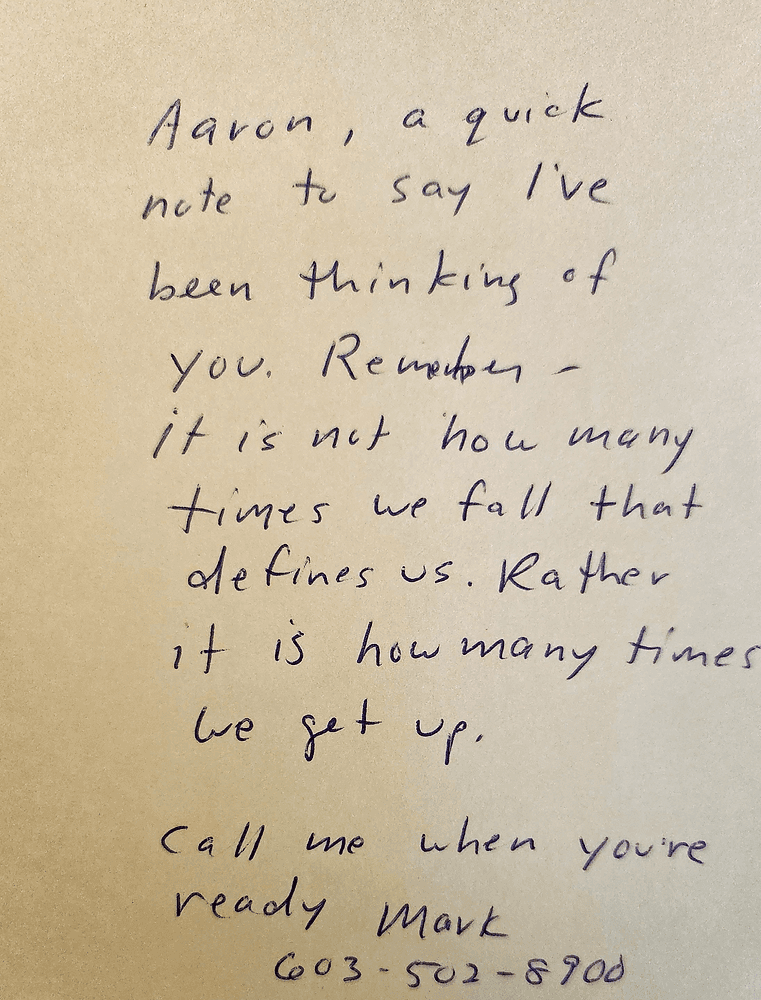 Aaron, a quick
note to say I've
been thinking of
you. Remember -
it is not how many
times we fall that
defines us. Rather
it is how many times
we get up.
Call me when you're
ready Mark
603-502-8900